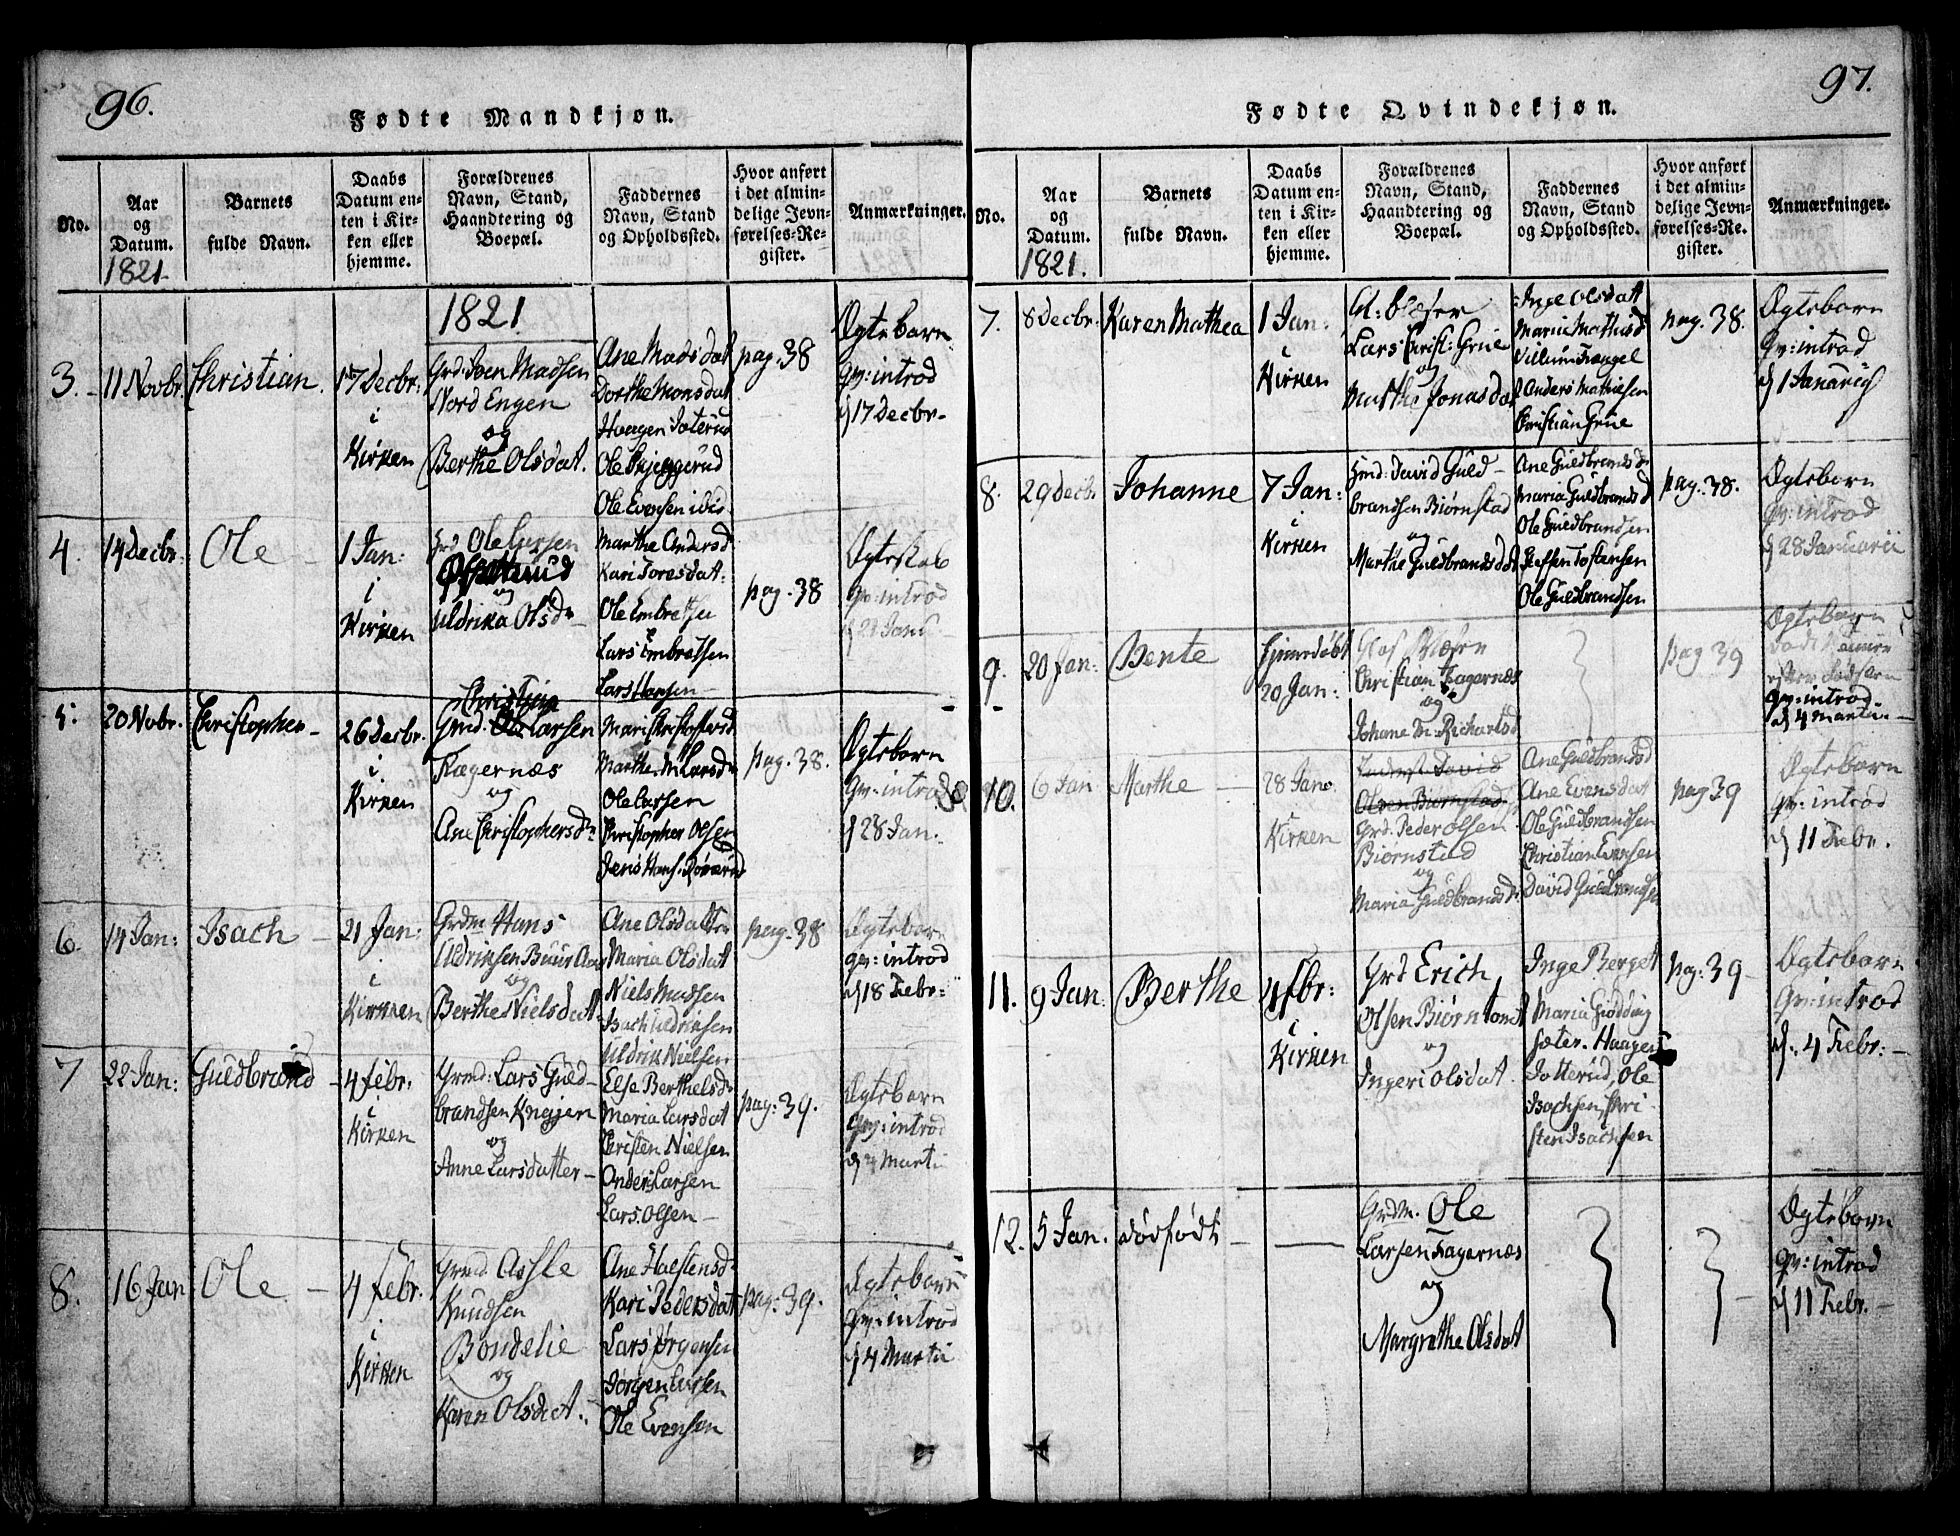 96.
Fødte Mandkjøn.
No.
Aar
og
Datum.
1821.
Barnets
fulde Navn.
Daabs
Datum en-
ten i Kir-
ken eller
hjemme.
Forældrenes
Navn, Stand,
Haandtering og
Boepæl.
Faddernes
Navn, Stand
og Opholdssted.
Hvor anført
i det almin-
delige Jevn-
førelses-Re-
gister.
Anmærkninger.
1821
3.
11 Novbr.
Christian.
17 Decbr:
i
Kirken
Grd: Iven Madsen
Nord Engen
og
Berthe Olsdat.
Ane Madsdat
Dorthe Monsdat
Haagen
Ole
Ole Evensen ibid.
pag. 38
Ægtebarn
qv: introd
d 17 Decbr.
4.
14 Decbr.
Ole
1 Jan:
i
Kirken
Ole Larsen
og
Uldrika Olsd
Marthe Andersd
Kari Toresdat:
Ole Embretsen
Lars Embretsen
Lars Hansen
pag. 38
Ægteskab
qv: introd
d 21 Janu.
5.
20 Novbr.
Christopher
26 Decbr.
i
Kirken
Christian
Grd. Ole Larsen
Fagernæs
og
Ane Christophersd
Mari Christofersd
Marthe M. Larsd
Ole Larsen
Christopher Olsen
Jens Hans.
pag. 38.
Ægtebarn
qv: introd
d 28 Jan.
6.
14 Jan:
Isach
21 Jan:
i
Kirken
Grdm Hans
Uldriksen Buur Aas
og
Berthe Nielsdat
Ane Olsdatter
Maria Olsdat
Niels Madsen
Isach Uldriksen
Uldrik Nielsen
pag. 38
Ægtebarn
qv: introd
d 18 Febr:
7
22 Jan:
Guldbrand
4 Febr.
i
Kirken
Grmd: Lars Guld-
brandsen
og
Anne Larsdatter
Else Berthelsd
Maria Larsdat
Christen Nielsen
Anders Larsen
Lars Olsen
pag: 39.
Ægtebarn
qv: introd
d 4 Marti
8.
16 Jan
Ole
4 Febr.
i
Kirken
Grmd Asle
Knudsen
Bondelie
og
Karen Olsdat.
Ane
Kari Pedersdat
Lars Jørgensen
Jørgen Larsen
Ole Evensen
pag. 39.
Ægtebarn
qv: introd
d 4 Martii
97.
Fødte Qvindekjøn.
No.
Aar
og
Datum.
1821.
Barnets
fulde Navn.
Daabs
Datum en-
ten i Kir-
ken eller
hjemme.
Forældrenes
Navn, Stand,
Haandtering og
Boepæl.
Faddernes
Navn, Stand
og Opholdssted.
Hvor anført
i det almin-
delige Jevn-
førelses-Re-
gister.
Anmærkninger.
7.
8 Decbr.
Karen Mathea
1 Jan:
i
Kirken
Gl: blæser
Lars Christ: Grue
og
Marthe Jonasdat
Inge Olsdatt
Marie Mathisd
Villum
Anders Mathiesen
Christian Grue
pag. 38.
Ægtebarn
qv: introd
d 1 Januarij
8.
29 Decbr.
Johanne
7 Jan:
i
Kirken
Grmd: David Guld-
brandsen Biørnstad
og
Marthe Guldbrandsdat
Ane Guldbrandsd
Maria Guldbrandsd
Ole Guldbrandsen
Steffen Tostensen
Ole Guldbrandsen
pag. 38.
Ægtebarn
qv: introd
d 28 Januarii
9.
20 Jan:
Bente
hjemedøbt
20 Jan:
Glas Blæser
Christian Fagernæs
og
Johane M. Richartsd
pag 39
Ægtebarn
qv: introd
d 4 Martii.
10.
6 Jan
Marthe
28 Jan.
i
Kirken
Olsen Biørnstad
Grd. Peder Olsen
Biørnstad
og
Maria Guldbrandsd
Ane Guldbrandsd
Ane Evensdat
Ole Guldbrandsen
Christian Evensen
David Guldbrandsen
pag 39
Ægtebarn
qv: introd
d 11 Febr.
11.
9 Jan.
Berthe
4 fbr:
i
Kirken
Grd Erich
Olsen Biørntomt
og
Ingeri Olsdat.
Inge Berget
Maria
sæter. Haagen
Ole
Isachsen, Chri-
sten Isachsen
pag: 39
Ægtebarn
qv: introd
d. 4 Febr:
12.
5 Jan.
dødfødt
Grdm. Ole
Larsen Fagernæs
og
Margrethe Olsdat
Ægtebarn
qv: introd
d 11 Febr.